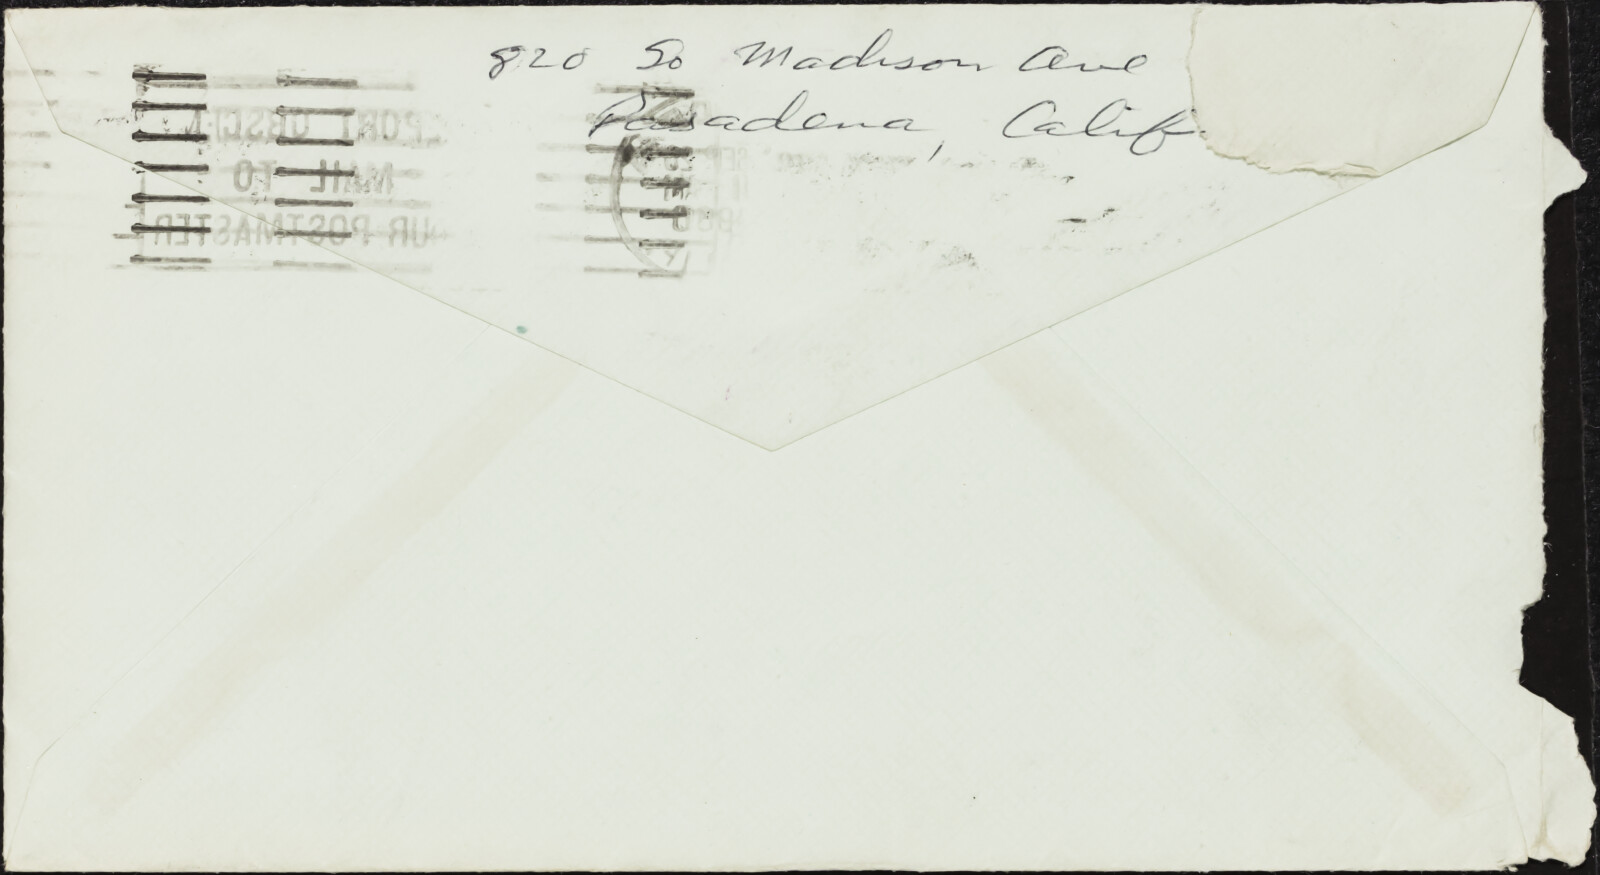 820 So Madison Ave
Pasadena, Calif.
REPORT OBSCENE
MAIL TO
YOUR POSTMASTER